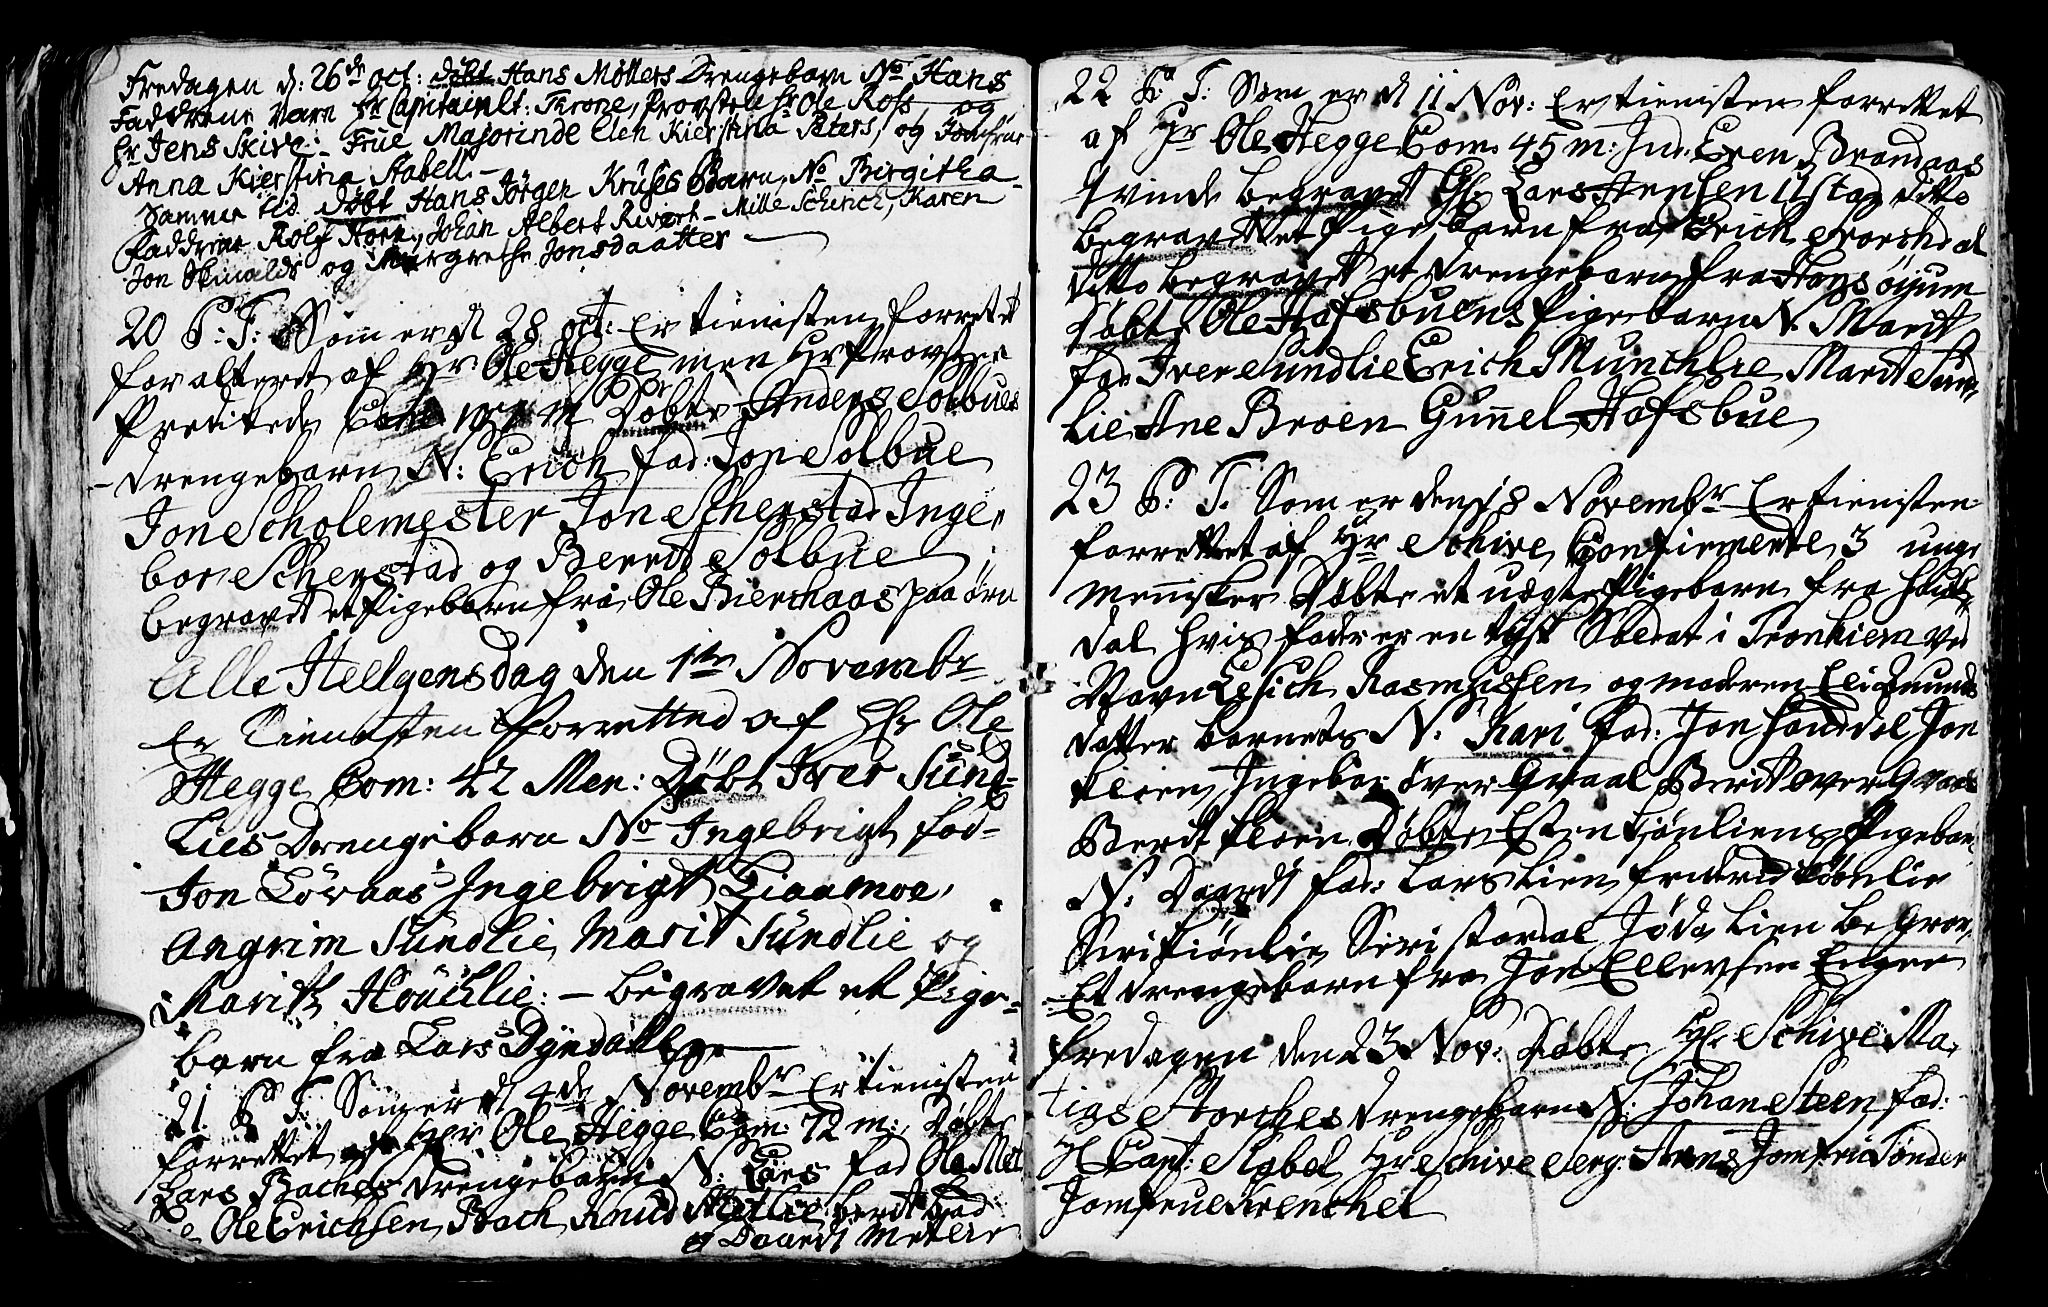 Fredagen d: 26de oct: døbt Hans Møllers Drengebarn No Hans
Faddrene vare Hr Capitainlt: Throne, Provstele Hr Ole Ross, og
Hr Jens Skive: Frue Majorinde Elen Kierstina Peters, og Jomfrue
Anna Kierstina Stabell.
Samme tid døbt Hans Jörgen Kruses Barn, No Birgitha
Faddrene Rolf Horn, Johan Albert Rivert - Mille Schench, Karen
Jon og Margrethe Jonsdaatter
20 P: T: Som er d 28 oct: Er tienisten forrettet
for alteret af Hr Ole Hegge men Hr Provsten
Preditede Com Døbte Anders Solbues
Drengebarn N: Erich fad: Jon Solbue
Jon Scholemester Jon Schenstad Inge
bor Schenstad og Berret Solbue
begravet et Pigebarn fra Ole Bierchaas paa örn
Alle Hellgensdag den 1te Novembr
Er Tienisten Forretted af Hr Ole
Hegge Com: 42 Men: Døbt Iver Sund-
Lies Drengebarn No Ingebrigt fad-
Jon Lövaas Ingebrigt Liaamoe,
Angrim Sundlie, Marit Sundlie og
Marith Houchlie: - Begravet et Pige-
barn fra Lars Dÿndahl
21. P T: Som er d 4de Novembr Er tienisten
forrettet af Hr Ole Hegge Com: 72 m: Døbte
Lars Baches Drengebarn N: Lars fad Ole Met
Ole Erichsen Bach Knud Metlie berit
og Daaredt Metlie
22 P: T: Som er d 11 Nov: Er tienisten forrettet
af Hr Ole Hegge Com. 45 m: Ind: Eren Brandaas
qvinde begravet Gl Lars Stensen 11stad Ditto
begravet et Pigebarn fra Erich Storchdal
Ditto begravet et Drengebarn fra Hans öijum
Døbte Ole Hafsbuens Pigebarn N. Marit
fad: Iver Sundlie Erich Munchlie Marit Sund
Lie Ane Broen Gunnel Hafsbue
23 P: T. Som er den 18 Novembr Er tienisten
forrettet af Hr Schive Confirmerte 3 unge
mennisker Døbte et uægte Pigebarn fra Houd
dal hvis fader er en tysk Soldat i Tronhiem ved
Navn Rasmussen og moderen Eli Amunds
datter barnets N: Kari fad: Jon Houddal Jon
Floen Ingebor över Qvaal Berit over Qvaal
Berit Floen Døbte Esten Kjönliens Pigebarn
N: Daaredt fad: Lars Lien fridrid Kiönlie
Siri Kiönlie Siri stordal Jøda Lien Begrav:
Et Drengebarn fra Jon Ellevsen Engen
Fredagen den 23 Nov: Døbte Hr Schive Ma-
tias Storches Drengebarn N: Johan Steen fad:
Hl Capt: Stabel Hr Schive Serg: Arens Jomfru Tönder
Jomfrue Krenchel